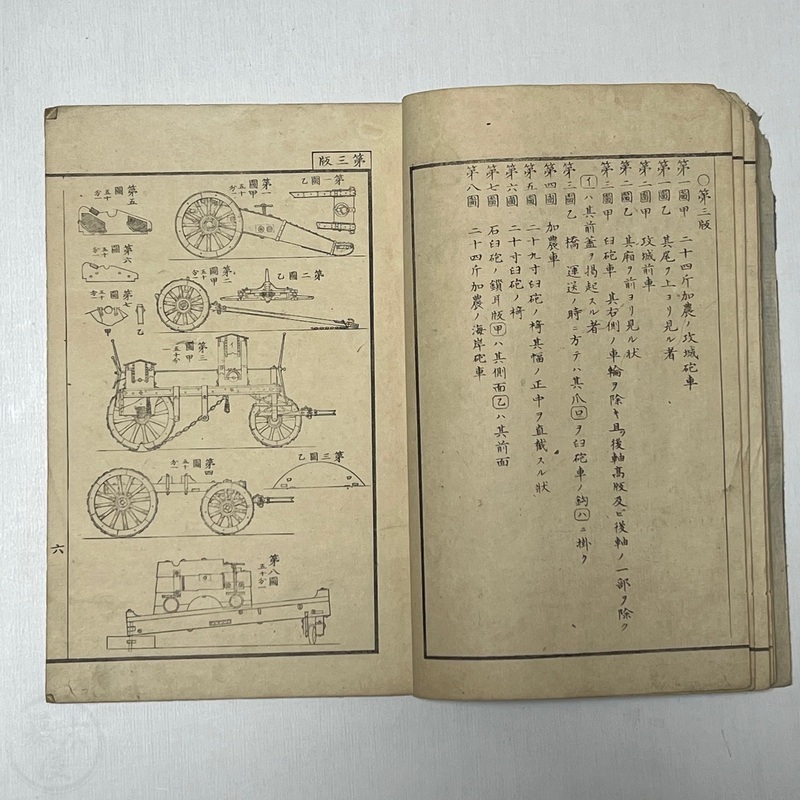 ○第三版
第一圖甲 二十四斤加農ノ攻城砲車
第一圖乙 其尾ヲ上ヨリ見ル者
第二圖甲 攻城前車
第二圖乙 其廂ヲ前ヨリ見ル状
第三圖甲 臼砲車 其右側ノ車輪ヲ除キ且ツ後軸高版及ビ後軸ノ一部ヲ除ク
イハ其前蓋ヲ揚起スル者
第三圖乙 橋 運送ノ時ニ方テハ其爪ロヲ臼砲車ノ鈎ハニ掛ク
第四圖 加農車
第五圖 二十九寸臼砲ノ椅其幅ノ正中ヲ直截スル状
第六圖 二十寸臼砲ノ椅
第七圖 石臼砲ノ鎖耳版甲ハ其側面乙ハ其前面
第八圖 二十四斤加農ノ海岸砲車
第三版
第一圖乙
第一圖甲
五十分一
第五圖
五十分一
第二圖乙
第二圖甲
五十分一
第六圖
五十分一
第七圖
五十分一
甲
乙
第三圖甲
五十分一
イ
第三圖乙
第四圖
五十分一
第八圖
五十分一
六